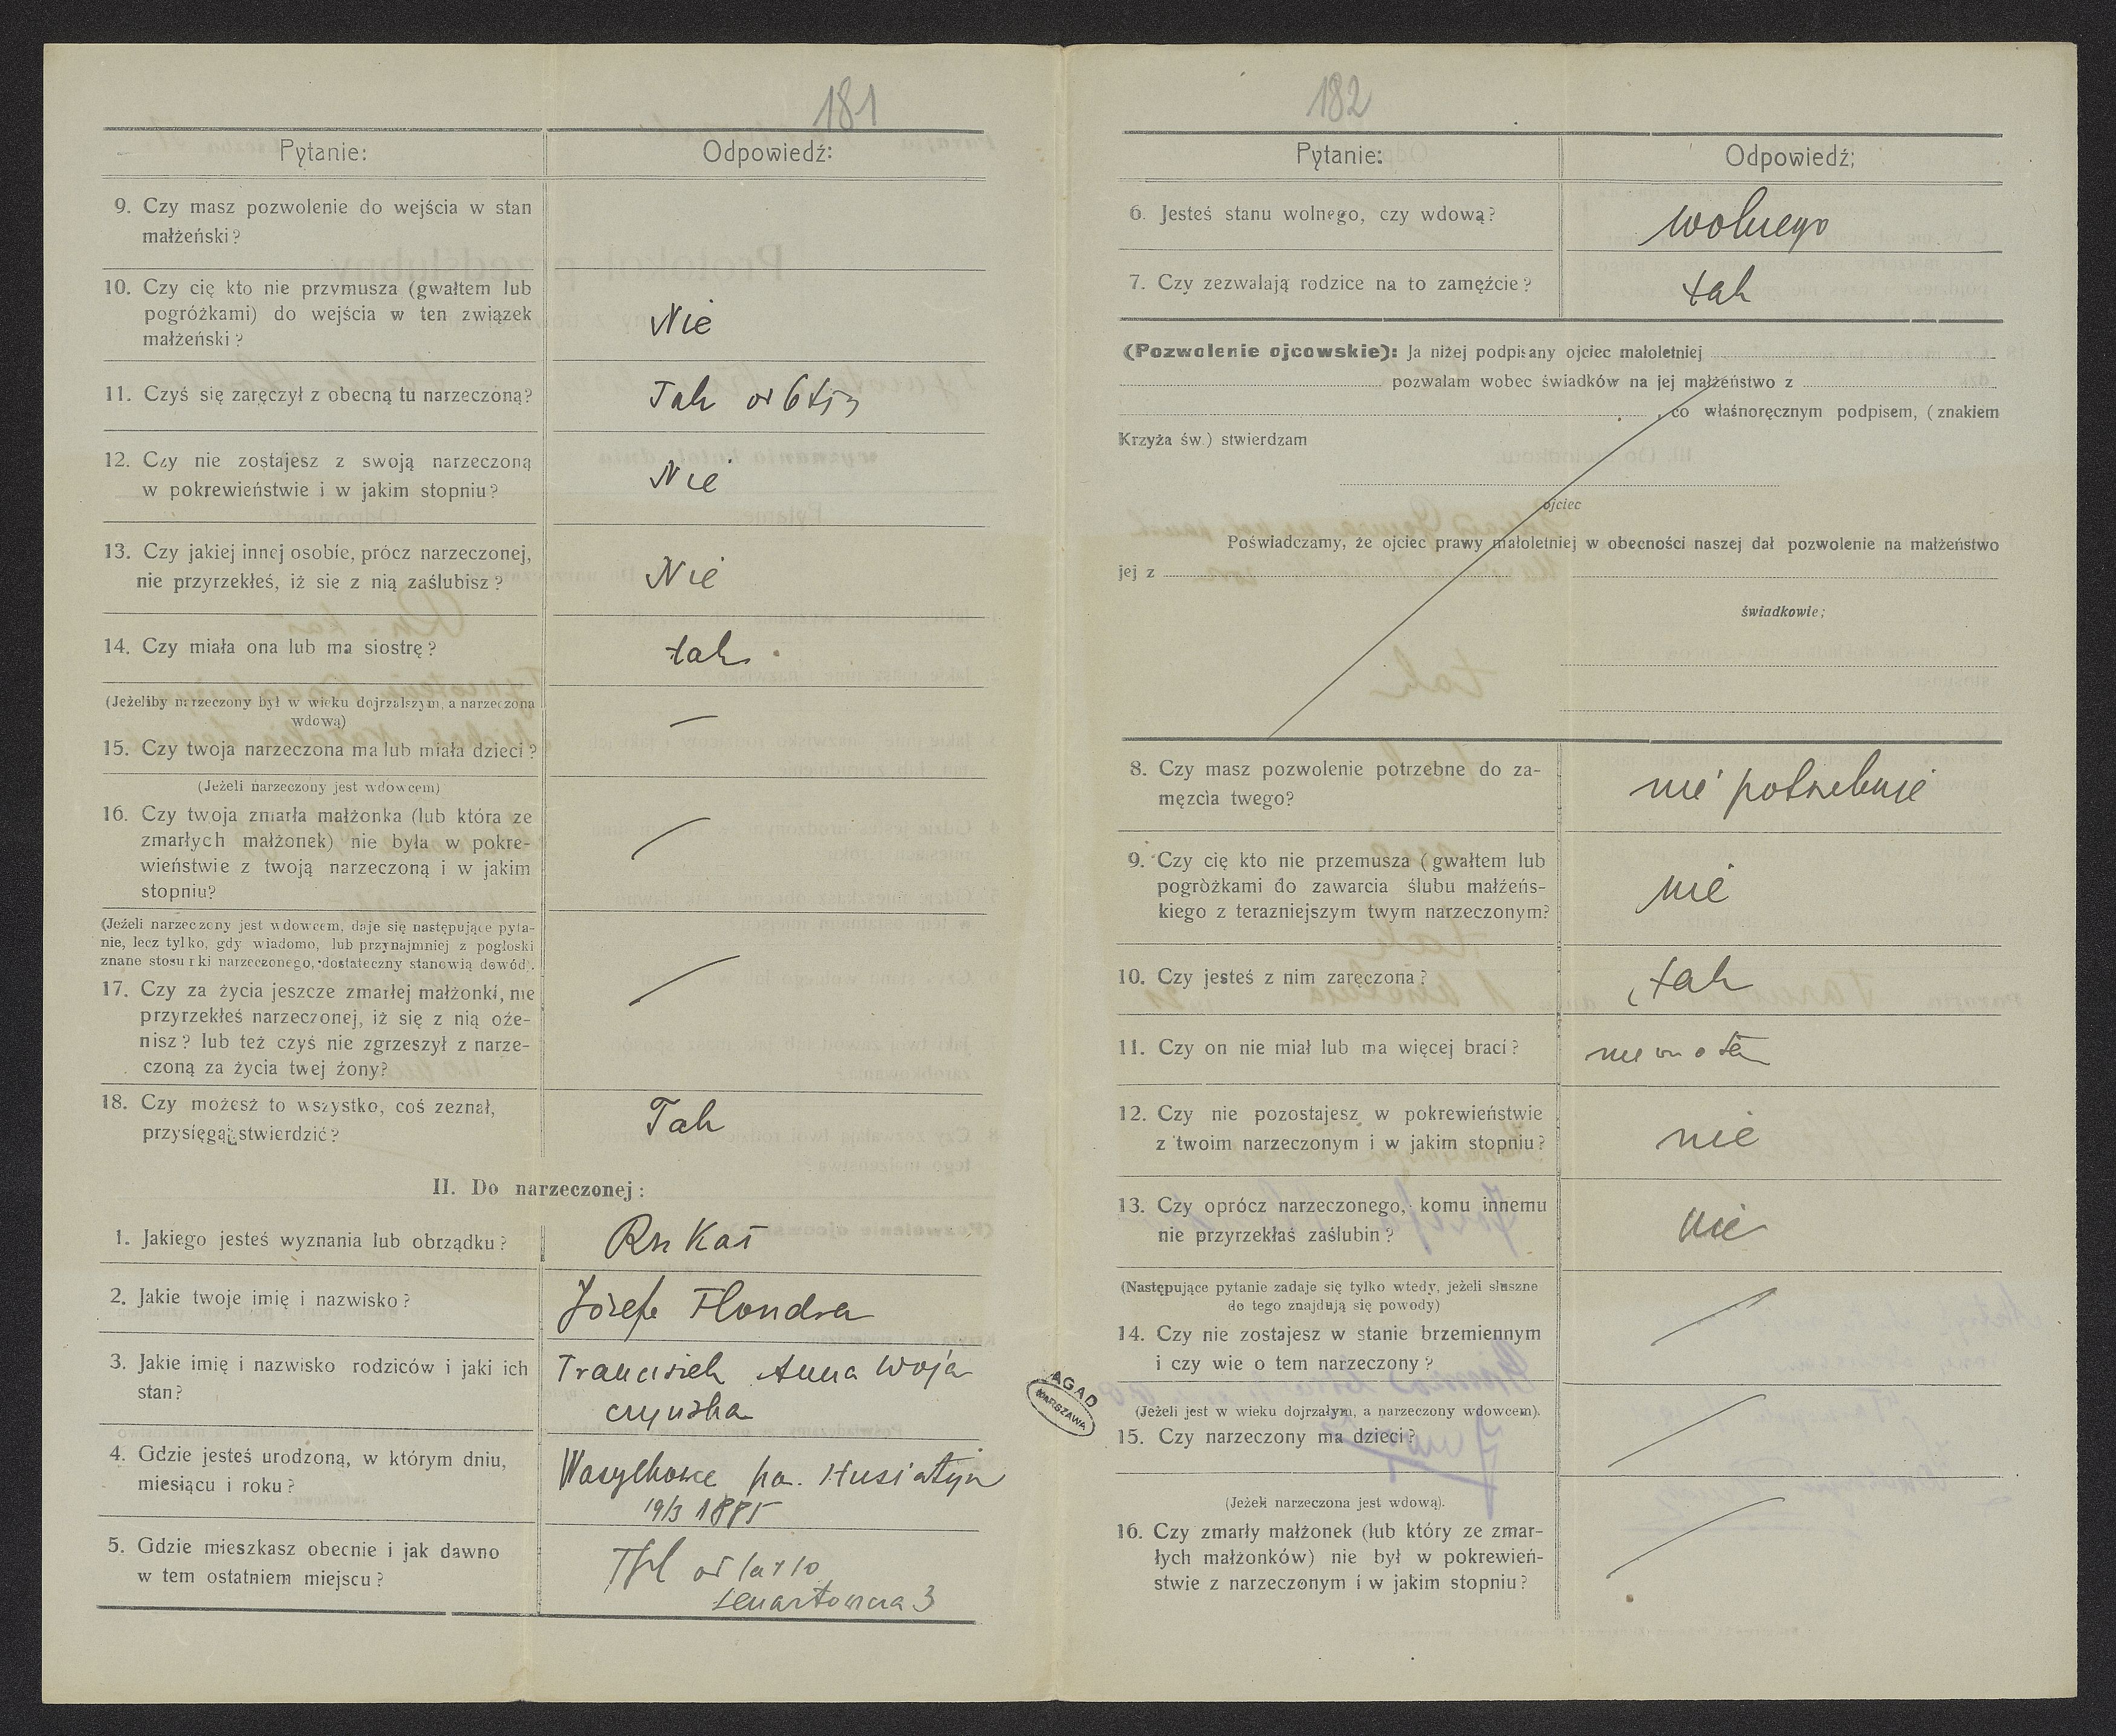 181
Pytanie: Odpowiedź:
9. Czy masz pozwolenie do wejścia w stan
małżeński?
10. Czy cię kto nie przymusza (gwałtem lub
pogróżkami) do wejścia w ten związek
małżeński?
Nie
11. Czyś się zaręczył z obecną tu narzeczoną?
Tak od 6
12. Czy nie zostajesz z swoją narzeczoną
w pokrewieństwie i w jakim stopniu?
Nie
13. Czy jakiej innej osobie, prócz narzeczonej,
nie przyrzekłeś, iż sie z nią zaślubisz?
Nie
14. Czy miała ona lub ma siostrę?
tak
(Jeżeliby narzeczony był w wieku dojrzalszym, a narzeczona
wdową)
15. Czy twoja narzeczona ma lub miała dzieci?
—
(Jeżeli narzeczony jest wdowcem)
16. Czy twoja zmarła małżonka (lub która ze
zmarłych małżonek) nie była w pokre-
wieństwie z twoją narzeczoną i w jakim
stopniu?
(Jeżeli narzeczony jest wdowcem, daje się następujące pyta-
nie, lecz tylko, gdy wiadomo, lub przynajmniej z pogłoski
znane stosunki narzeczonego, dostateczny stanowią dowód).
17. Czy za życia jeszcze zmarłej małżonki, nie
przyrzekłeś narzeczonej, iż się z nią oże-
nisz? lub też czyś nie zgrzeszył z narze-
czoną za życia twej żony?
18. Czy możesz to wszystko, coś zeznał,
przysięgą stwierdzić?
Tak
II. Do narzeczonej:
1. Jakiego jesteś wyznania lub obrządku?
Rz Kat
2. Jakie twoje imię i nazwisko?
Józefa Flondra
3. Jakie imię i nazwisko rodziców i jaki ich
stan?
Franciszek Anna Woja
czyńska
4. Gdzie jesteś urodzoną, w którym dniu,
miesiącu i roku?
Wasylkowce pow. Husiatyn
19/3 1885
5. Gdzie mieszkasz obecnie i jak dawno
w tem ostatniem miejscu?
od lat 10
Lenartowicza 3
AGAD
WARSZAWA
182
Pytanie: Odpowiedź;
6. Jesteś stanu wolnego, czy wdową?
wolnego
7. Czy zezwalają rodzice na to zamęźcie?
tak
(Pozwolenie ojcowskie): Ja niżej podpisany ojciec małoletniej
pozwalam wobec świadków na jej małżeństwo z
, co właśnoręcznym podpisem, (znakiem
Krzyża św.) stwierdzam
ojciec
Poświadczamy, że ojciec prawy małoletniej w obecności naszej dał pozwolenie na małżeństwo
jej z
świadkowie;
8. Czy masz pozwolenie potrzebne do za-
męzcia twego?
nie potrzebuje
9. Czy cię kto nie przemusza (gwałtem lub
pogróżkami do zawarcia ślubu małżeńs-
kiego z terazniejszym twym narzeczonym?
nie
10. Czy jesteś z nim zaręczona?
tak
11. Czy on nie miał lub ma więcej braci?
nie wie o tem
12. Czy nie pozostajesz w pokrewieństwie
z twoim narzeczonym i w jakim stopniu?
nie
13. Czy oprócz narzeczonego, komu innemu
nie przyrzekłaś zaślubin?
nie
(Następujące pytanie zadaje się tylko wtedy, jeżeli słuszne
do tego znajdują się powody)
14. Czy nie zostajesz w stanie brzemiennym
i czy wie o tem narzeczony?
(Jeżeli jest w wieku dojrzałym, a narzeczony wdowcem).
15. Czy narzeczony ma dzieci?
(Jeżeli narzeczona jest wdową).
16. Czy zmarły małżonek (lub który ze zmar-
łych małżonków) nie był w pokrewień-
stwie z narzeczonym i w jakim stopniu?